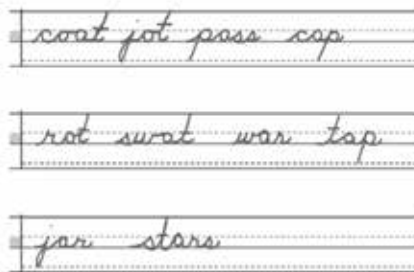 coat jot pass cap
rot swat war tap
jar stars